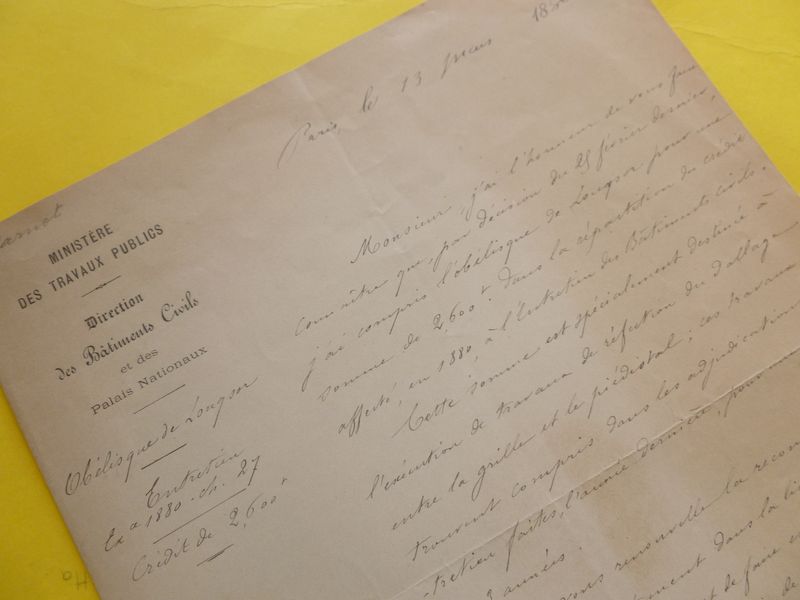 Paris, le 13 mars
arnet
MINISTÈRE
DES TRAVAUX PUBLICS
Direction
des Bâtiments Civils
et des
Palais Nationaux
Obélisque de Louqsor
Entretien
Ex ce 1880. ch. 27
Crédit de 2,600 f
Monsieur, j'ai l'honneur de vous faire
connaître que, par décision du 25 février dernier,
j'ai compris l'obélisque de Louqsor pour une
somme de 2,600 f dans la répartition du crédit
affecté, en 1880, à l'Entretien des Bâtiments civils.
Cette somme est spécialement destinée à
l'exécution de travaux de réfection du dallage
entre la grille et le piédestal; ces travaux
trouvent compris dans les adjudications
tretien faites, l'année dernière, pour
3 années.
vous renouvelle la recom
dans la li
de faire
de